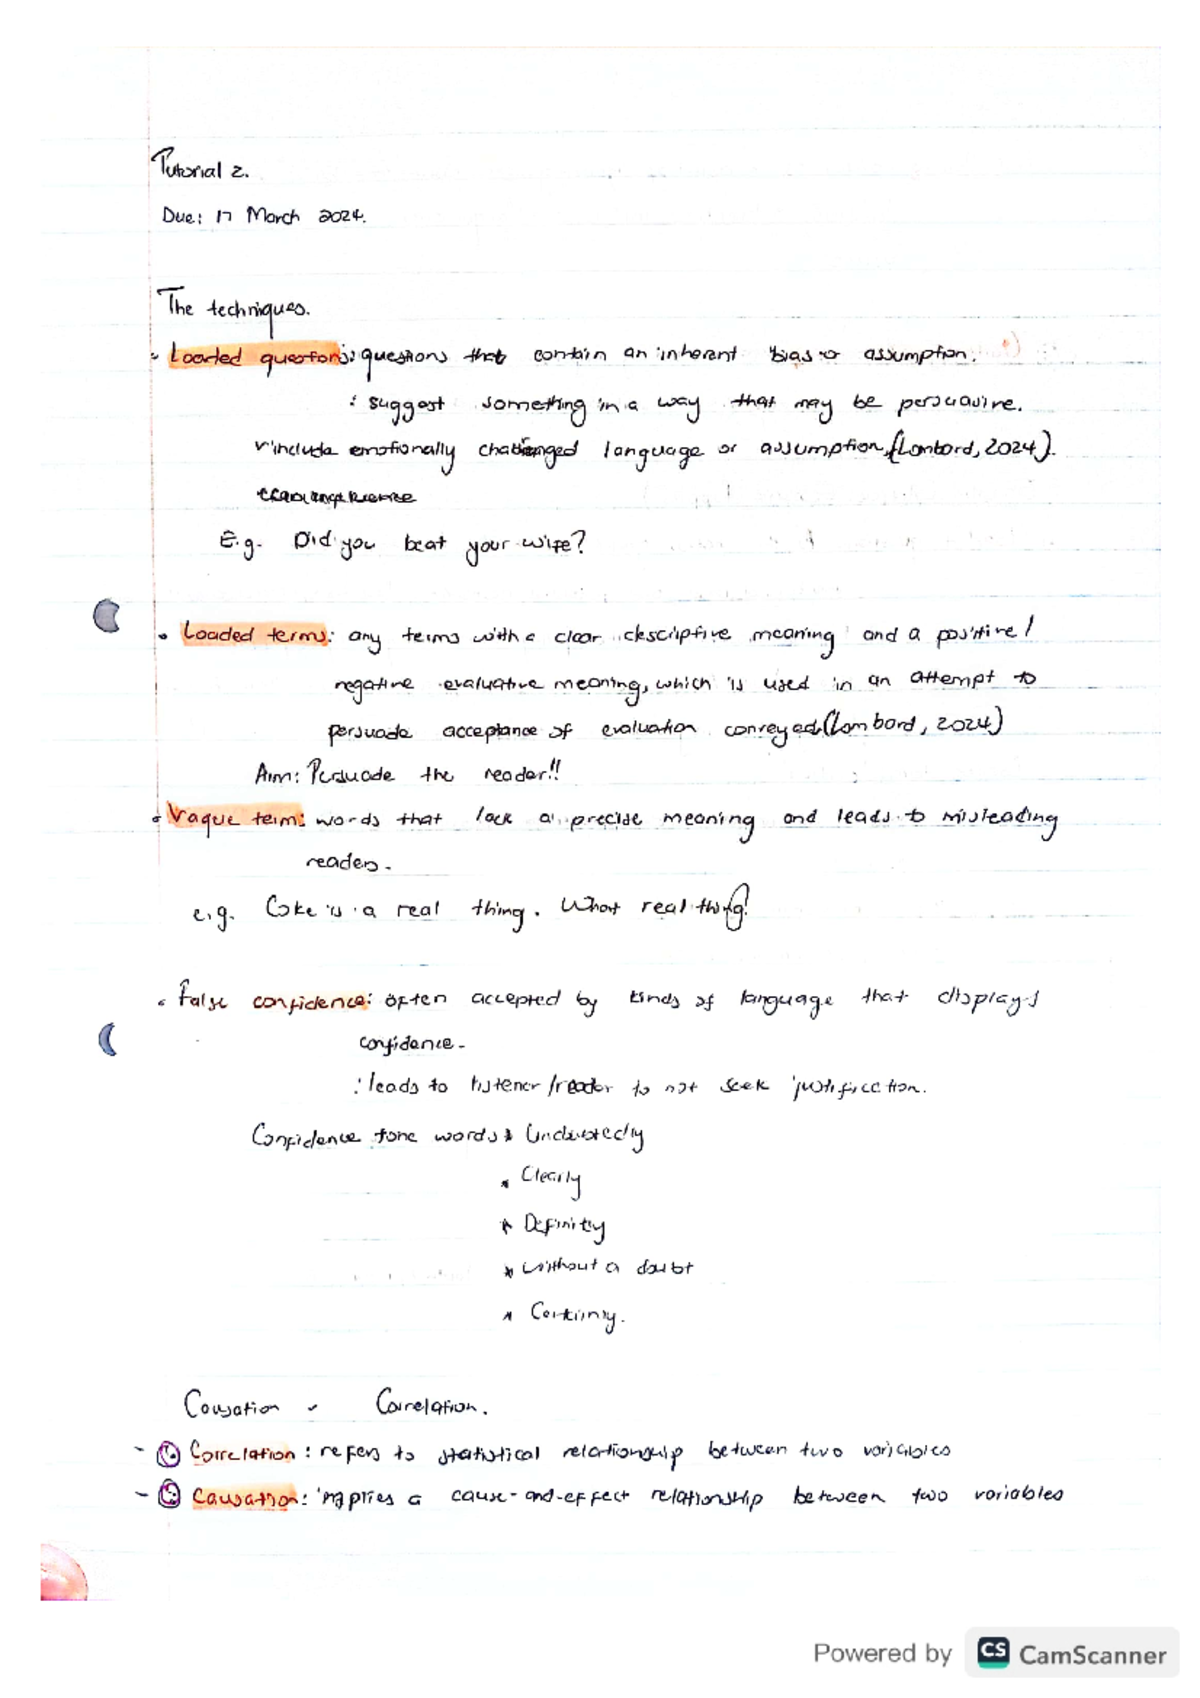 Tutorial 2.
Due: 17 March 2024.
The techniques.
Loaded questions: questions that contain an inherent bias or assumption.
: suggest something in a way that may be persuasive.
include emotionally challenged language or assumption, (Lombord, 2024).
E.g. Did you beat your wife?
• Loaded terms: any terms with a clear descriptive meaning and a positive/
negative evaluative meaning, which is used in an attempt to
persuade acceptance of evaluation conveyed (Lombord, 2024)
Aim: Persuade the reader!!
• Vague term: words that lack a precise meaning and leads to misleading
readers.
e.g. Coke is a real thing. What real thing?
• False confidence: often accepted by kinds of language that displays
confidence.
: leads to listener/reader to not seek justification.
Confidence tone words * Undoubtedly
* Clearly
* Definitly
* Without a doubt
* Certainly.
Causation - Correlation.
- Correlation: refers to statistical relationship between two variables
- Causation: implies a cause-and-effect relationship between two variables
Powered by CS CamScanner